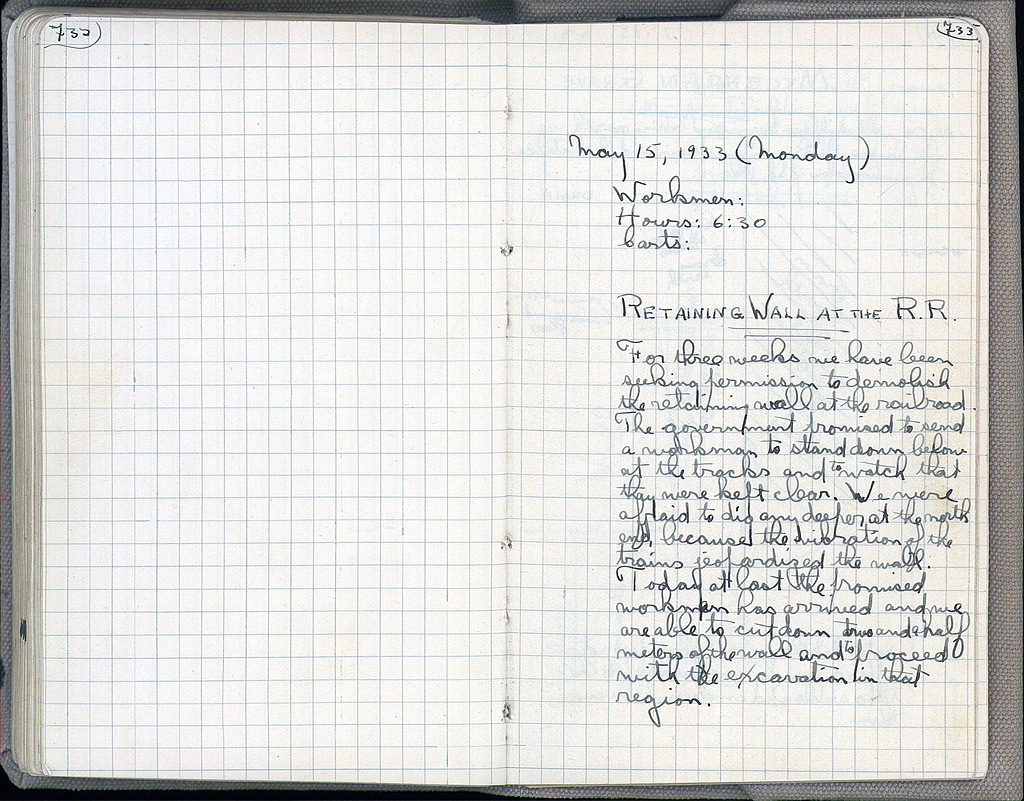 732
733
May 15, 1933 (Monday)
Workmen:
Hours: 6:30
Carts:
RETAINING WALL AT THE R.R.
For three weeks we have been
seeking permission to demolish
the retaining wall at the railroad.
The government promised to send
a workman to stand down below
at the tracks and to watch that
they were kept clear. We were
afraid to dig any deeper, at the north
end, because the vibration of the
trains jeopardized the wall.
Today at last the promised
workman has arrived and we
are able to cut down two and a half
meters of the wall and to proceed
with the excavation in that
region.